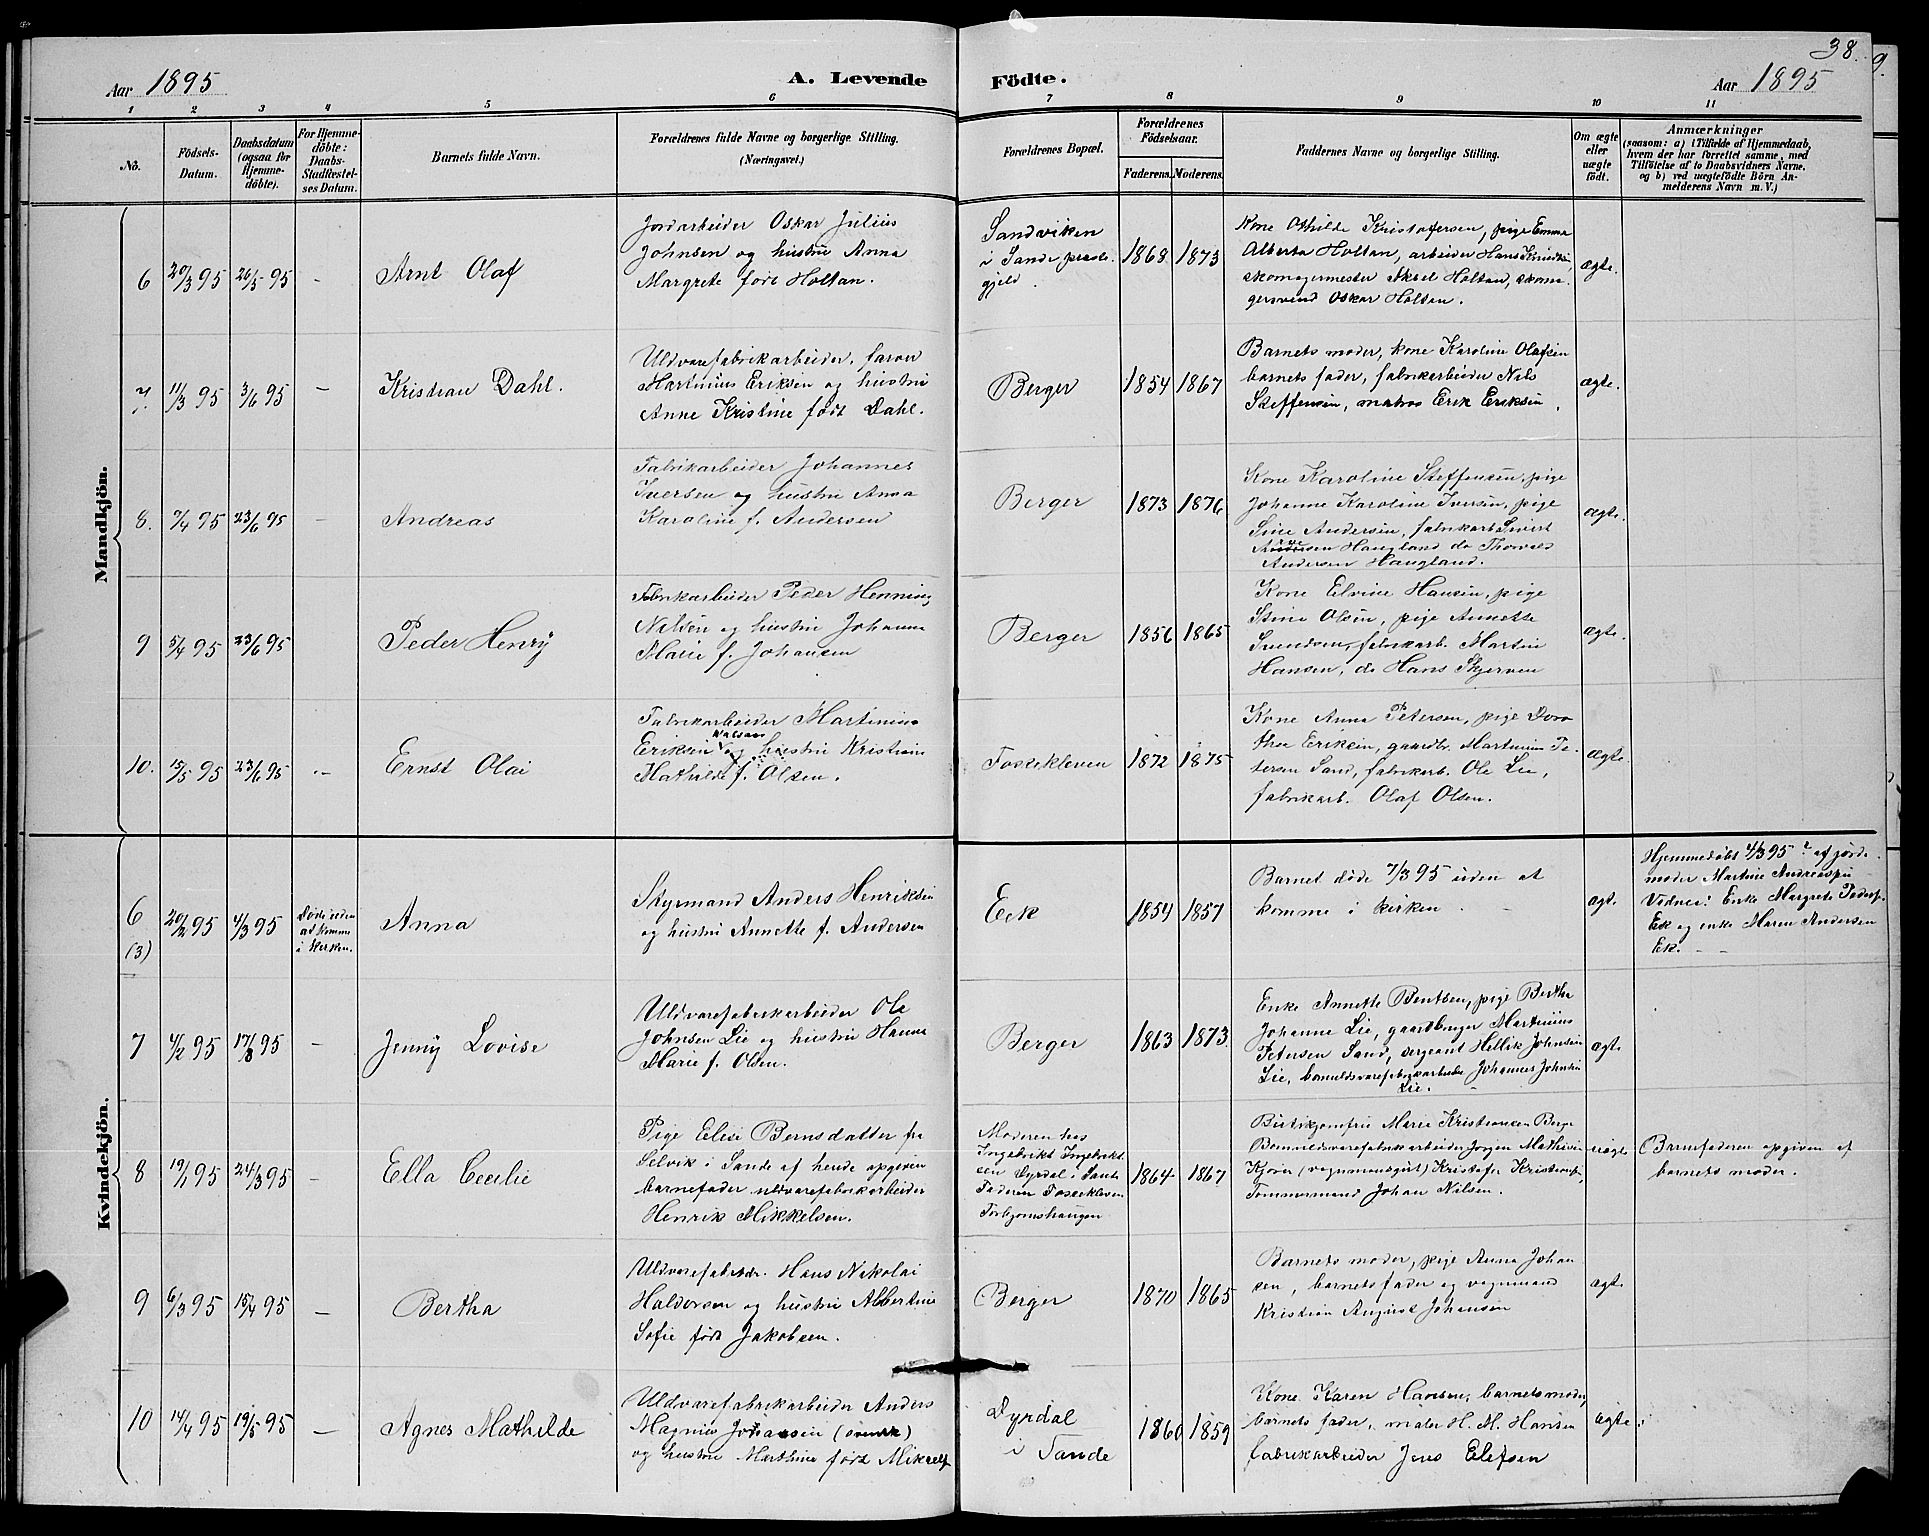 38.
9.
Aar 1895
A. Levende Födte.
Aar 1895
1 2 3 4 5 6 7 8 9 10 11
No.
Födsels-
Datum.
Daabsdatum
(ogsaa for
Hjemme-
döbte).
For Hjemme-
döbte:
Daabs-
Stadfestel-
ses Datum.
Barnets fulde Navn.
Forældrenes fulde Navne og borgerlige Stilling.
(Næringsvei.)
Forældrenes Bopæl.
Forældrenes
Födselsaar.
Faderens. Moderens.
Faddernes Navne og borgerlige Stilling.
Om ægte
eller
uægte
födt.
Anmærkninger
(saasom: a) i Tilfælde af Hjemmedaab,
hvem der har forrettet samme, med
Tilföielse af to Daabsvidners Navne,
og b) ved uægtefödte Börn An-
melderens Navn m. V.)
Mandkjön.
6 20/3 95 26/5 95 - Arnt Olaf
Jordarbeider Oskar Julius
Johnsen og hustru Anna
Margrete født Holtan.
Sandviken
i Sande præste-
gjeld
1868 1873
Kone Othilde Kristofersen, pige Emma
Alberta Holtan, arbeider Hans
skomagermester Aksel Holtan, skoma-
gersvend Oskar Holtan.
ægte.
7. 11/3 95 3/6 95 - Kristian Dahl.
Uldvarefabrikarbeider, farver
Martinius Eriksen og hustru
Anne Kristine født Dahl.
Berger
1854 1867
Barnets moder, kone Karoline Olafsen
barnets fader, fabrikarbeider Nils
Steffensen, matros Erik Eriksen.
ægte.
8. 7/4 95 23/6 95 - Andreas
Fabrikarbeider Johannes
Iversen og hustru Anna
Karoline f. Andersen
Berger
1873 1876
Kone Karoline Steffensen, pige
Johanne Karoline Iversen, pige
Sine Andersen, fabrikarb. Sivert
Haugland do Thorvald
Andersen Haugland.
ægte.
9 5/4 95 23/6 95 Peder Henrÿ
Fabrikarbeider Peder Henning
Nilsen og hustru Johanne
Marie f. Johansen
Berger
1856 1865
Kone Elvine Hansen, pige
Stine Olsen, pige Annette
Svendsen, fabrikarb. Martin
Hansen, do Hans Skjerven
ægte.
10. 15/5 95 23/6 95 - Ernst Olai
Fabrikarbeider Martinius
Eriksen Nalsaas og hustru Kristiane
Mathilde f. Olsen.
Fossekleven
1872 1875
Kone Anna Petersen, pige Doro
thea Eriksen, gaardbr. Martinius Pe-
tersen Sand, fabrikarb. Ole Lie,
fabrikarb. Olaf Olsen.
ægte.
Kvindekjön.
6
(3)
20/2 95 4/3 95
Døde uden
at komme
i kirken.
Anna
Styrmand Anders Henriksen
og hustru Annette f. Andersen
Eek
1854 1857
Barnet døde 7/3 95 uden at
komme i kirken
ægt.
Hjemmedøbt 4/3 95 af jorde-
moder Martine Andreasen
Vidner: Enke Margrete Peders.
Eek og enke Maren Andersen
Eek.
7 4/2 95 17/3 95 - Jennÿ Lovise
Uldvarefabrikarbeider Ole
Johnsen Lie og hustru Hanna
Marie f. Olsen.
Berger
1863 1873
Enke Annette Bentsen, pige Bertha
Johanne Lie, gaardbruger Martinius
Petersen Sand, sergeant Hellik Johnsen
Lie, bomuldsvarefabrikarbeider Johannes Johnsen
Lie.
ægte
8 19/1 95 24/3 95 - Ella Cecilie
Pige Elise Berntsdatter fra
Selvik i Sande af hende opgiven
barnefader uldvarefabrikarbeider
Henrik Mikkelsen.
Moderen hos
Ingebrikt Ingebrikt-
sen Dyrdal i Sande
Faderen Fossekleven
Torbjørnshaugen
1864 1867
Butikjomfru Marie Kristiansen Berger
Bomuldsvarefabrikarbeider Jørgen Mathisen
Kjører (vognmandsgut) Kristofer Kristensen,
Tømmermand Johan Nilsen.
uægte
Barnefaderen opgiven af
barnets moder.
9 6/3 95 15/4 95 - Bertha
Uldvarefabrikar. Hans Nikolai
Haldorsen og hustru Albertine
Sofie født Jakobsen.
Berger
1870 1865
Barnets moder, pige Anna Johan
sen, barnets fader og vognmand
Kristian August Johansen
ægt.
10 14/4 95 19/5 95 - Agnes Mathilde
Uldvarefabrikarbeider Anders
Magnus Johansen (svensk)
og hustru Marthine født Mikaels.
Dyrdal
i Sande
1860 1859
Kone Karen Hansen, barnets moder,
barnets fader, maler H. M. Hansen
fabrikarbeider Jens Elefsen
ægte